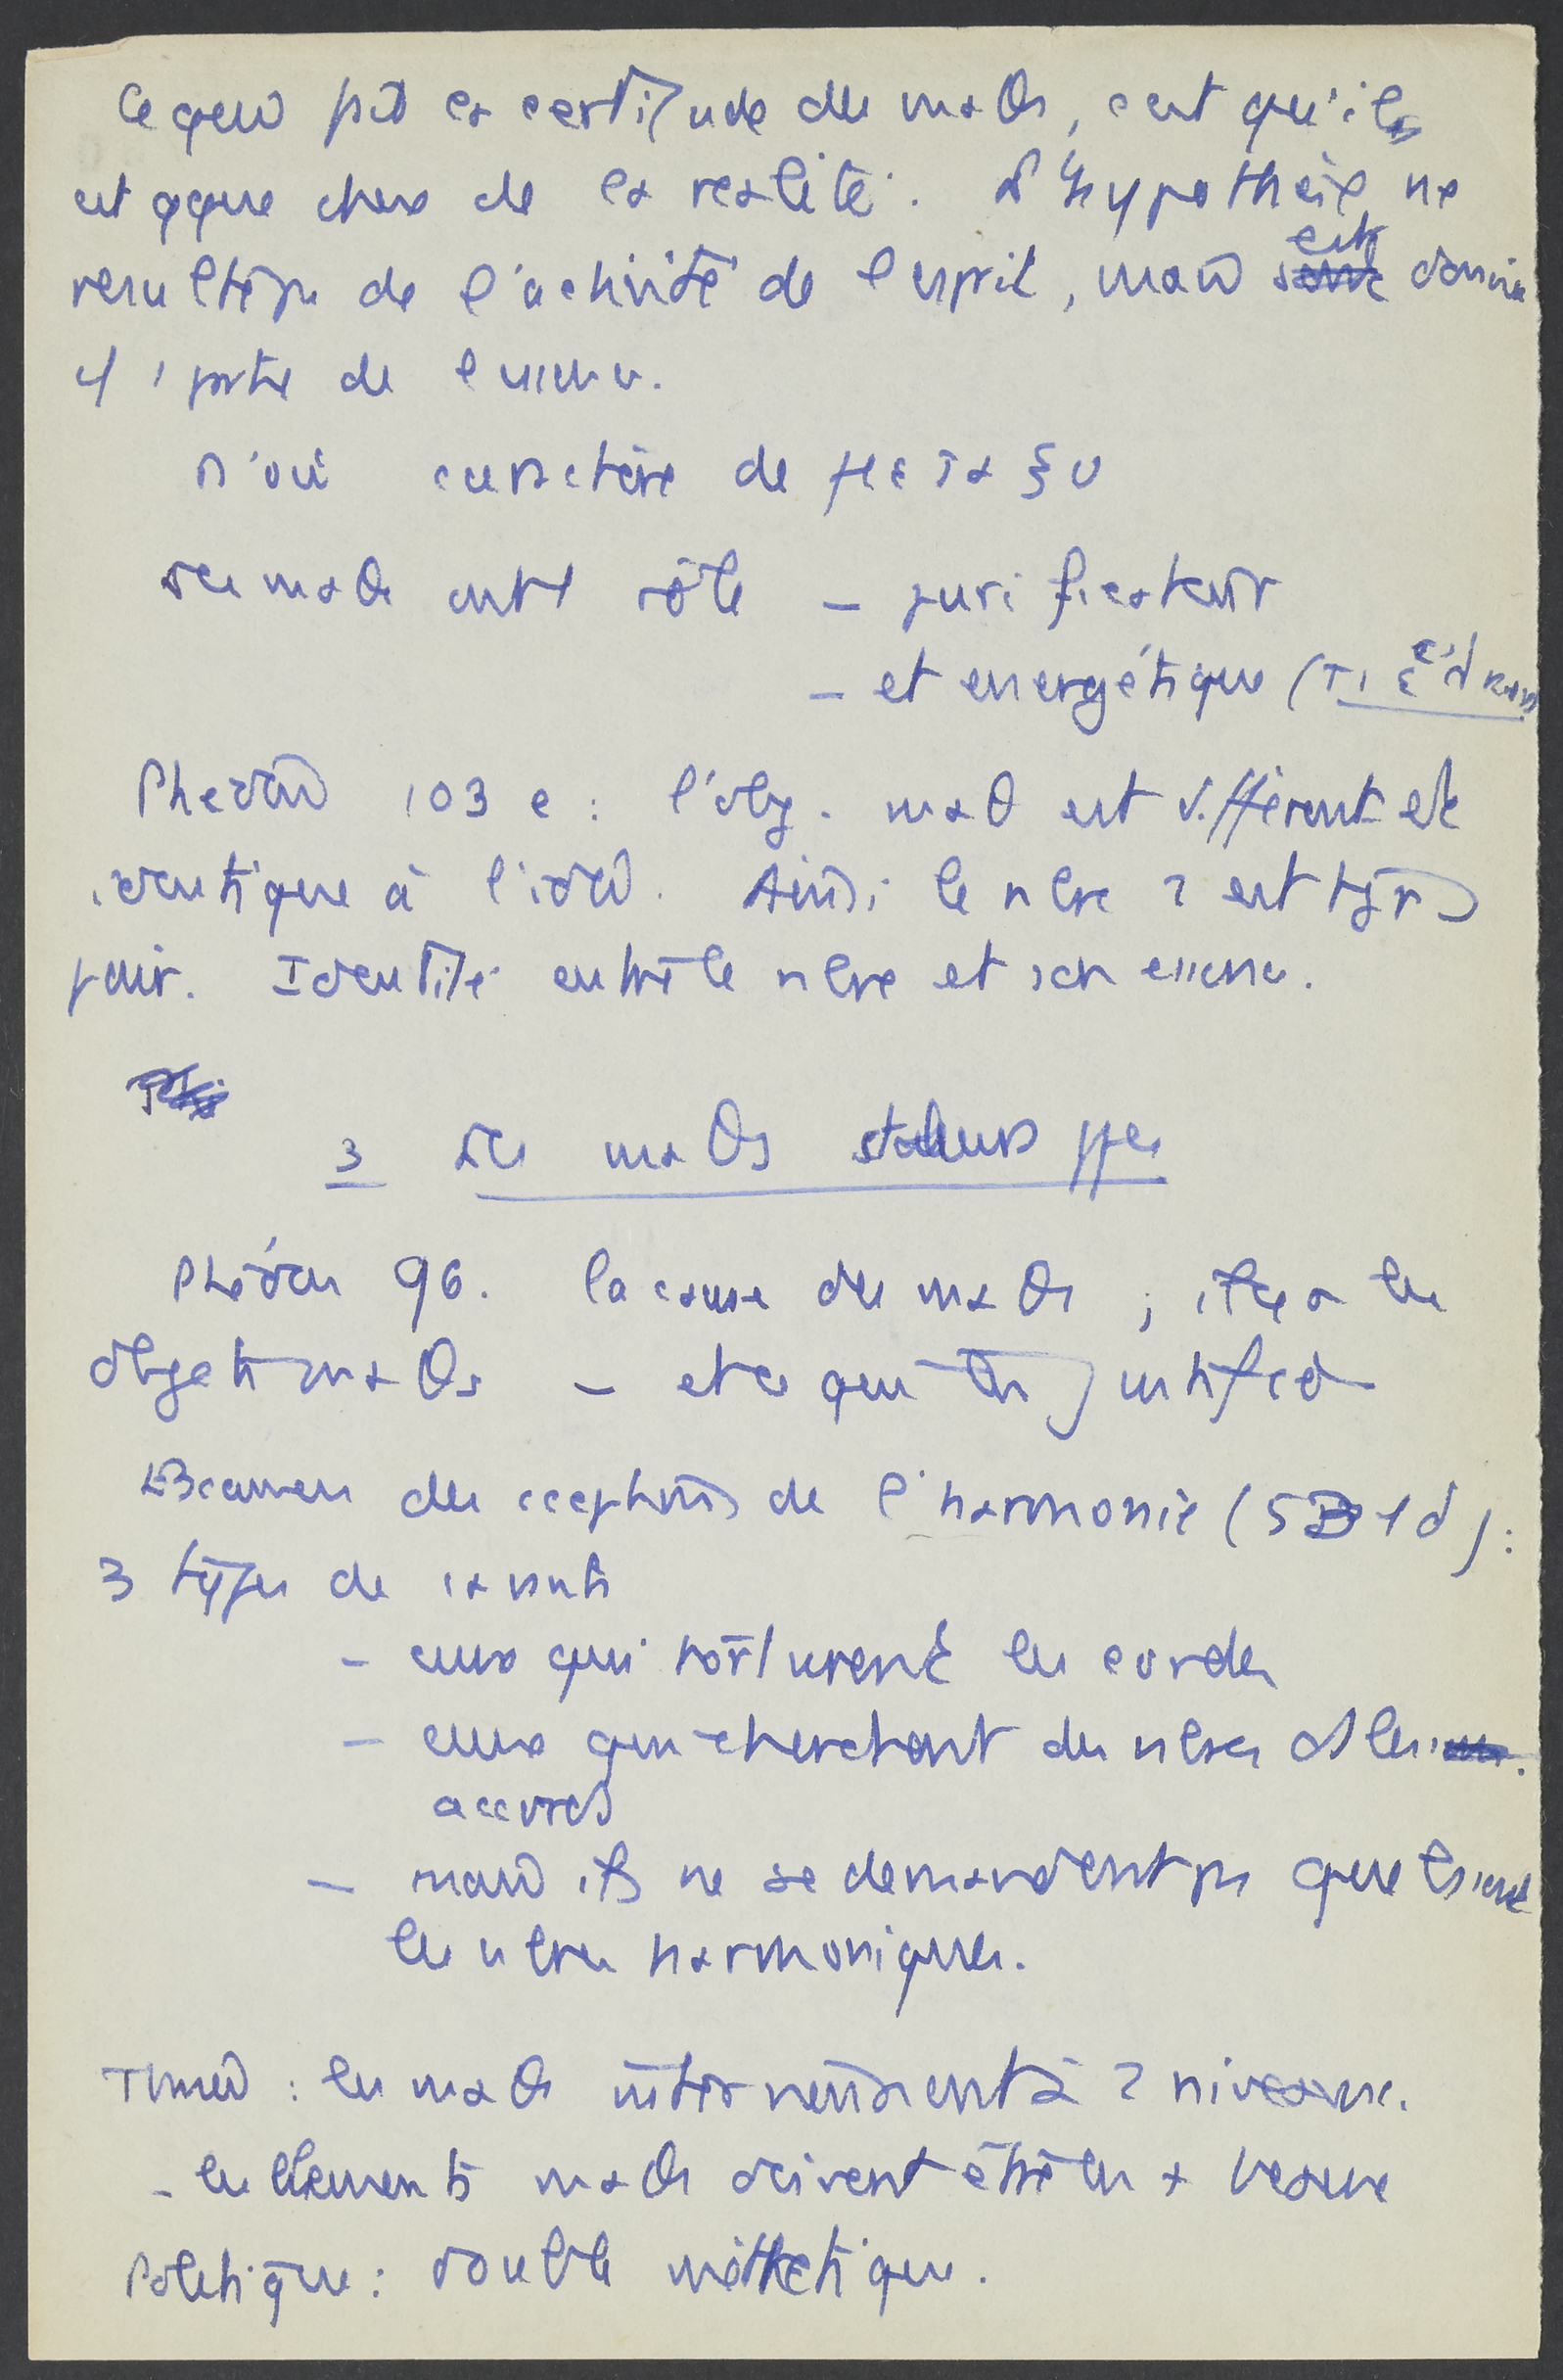 Ce qui fait la certitude des maths, c'est qu'ils
est qque chose de la réalité. L'hypothèse ne
résulte pas de l'activité de l'esprit, mais est
partie de l'essence.
D'où caractère de μεταξυ
Les maths ont 1 rôle – purificateur
– et énergétique (
Phédon 103 e : l'obj. math est différent et
identique à l'idée. Ainsi le nbre 2 est tjrs
pair. Identité entre le nbre et son essence.
3 Les maths
Phédon 96. la cause des maths ; il y a les
objets maths – et ce qui les justifie
Examen des acceptions de l'harmonie (531 d) :
3 types de savants
– ceux qui torturent les cordes
– ceux qui cherchent des nbres ds les
accords
– mais ils ne se demandent pas quels sont
les nbres harmoniques.
Timée : les maths interviennent à 2 niveaux.
– les éléments maths doivent être les + beaux
Politique : double métrétique.